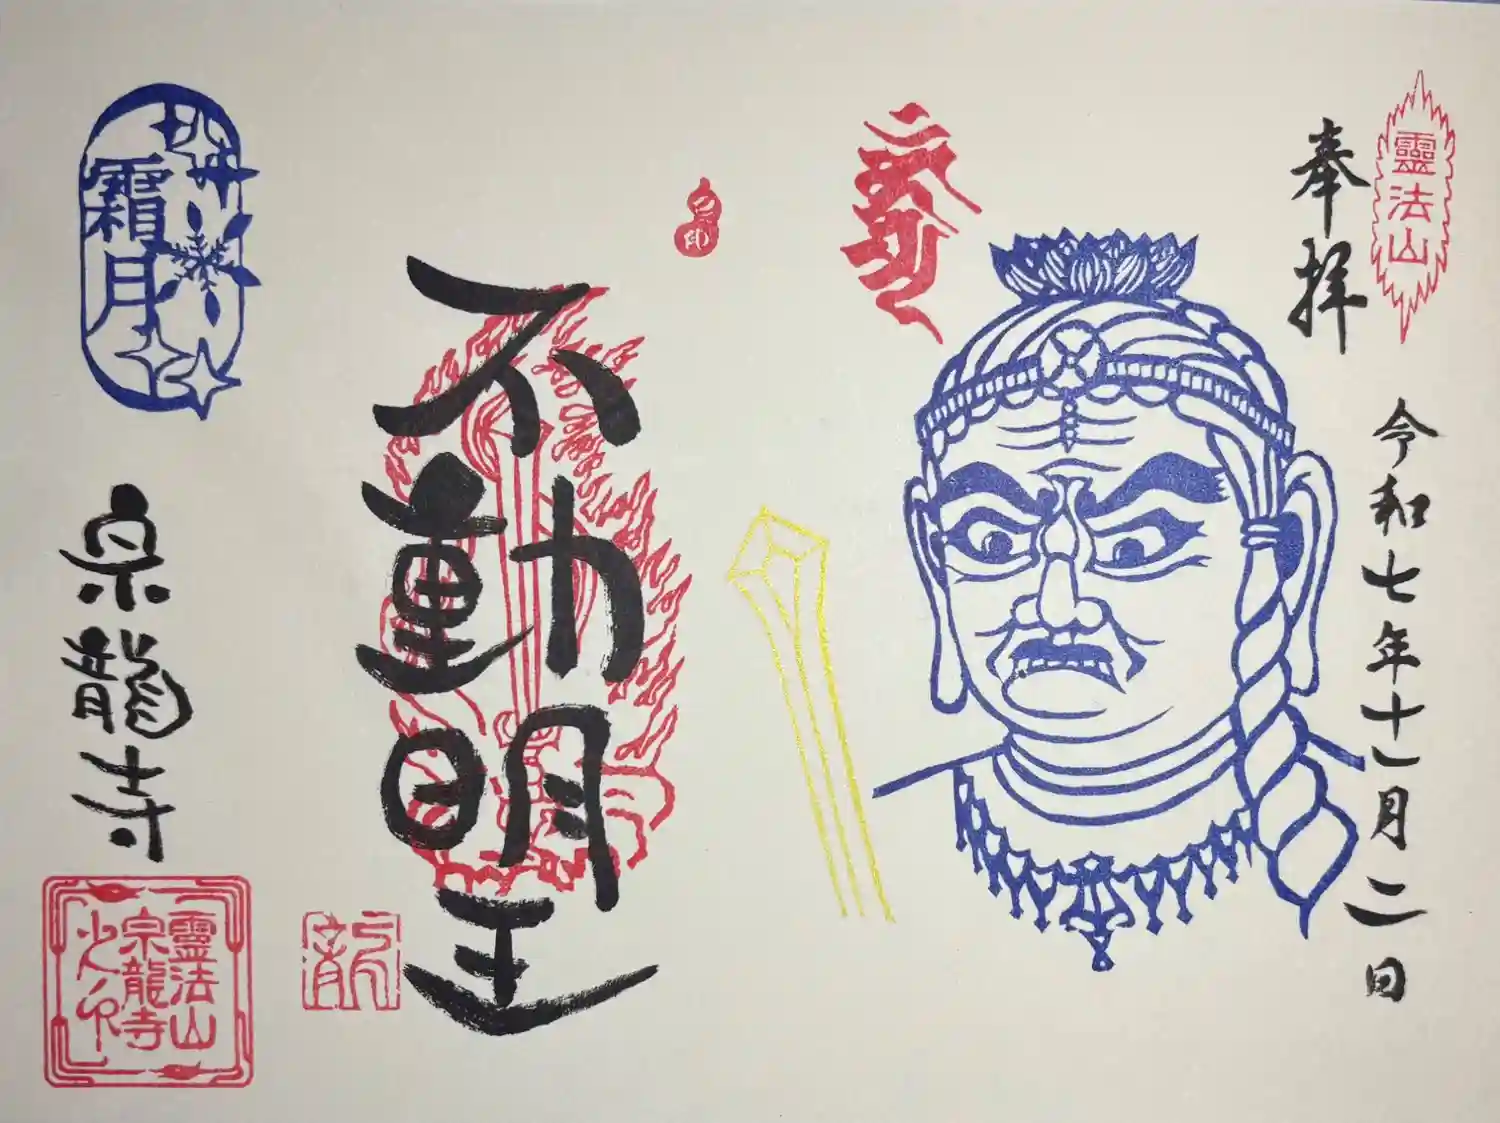 靈法山
奉拝
令和七年十一月二日
不動明王
印
龍
霜月
宗龍寺
靈法山
宗龍寺